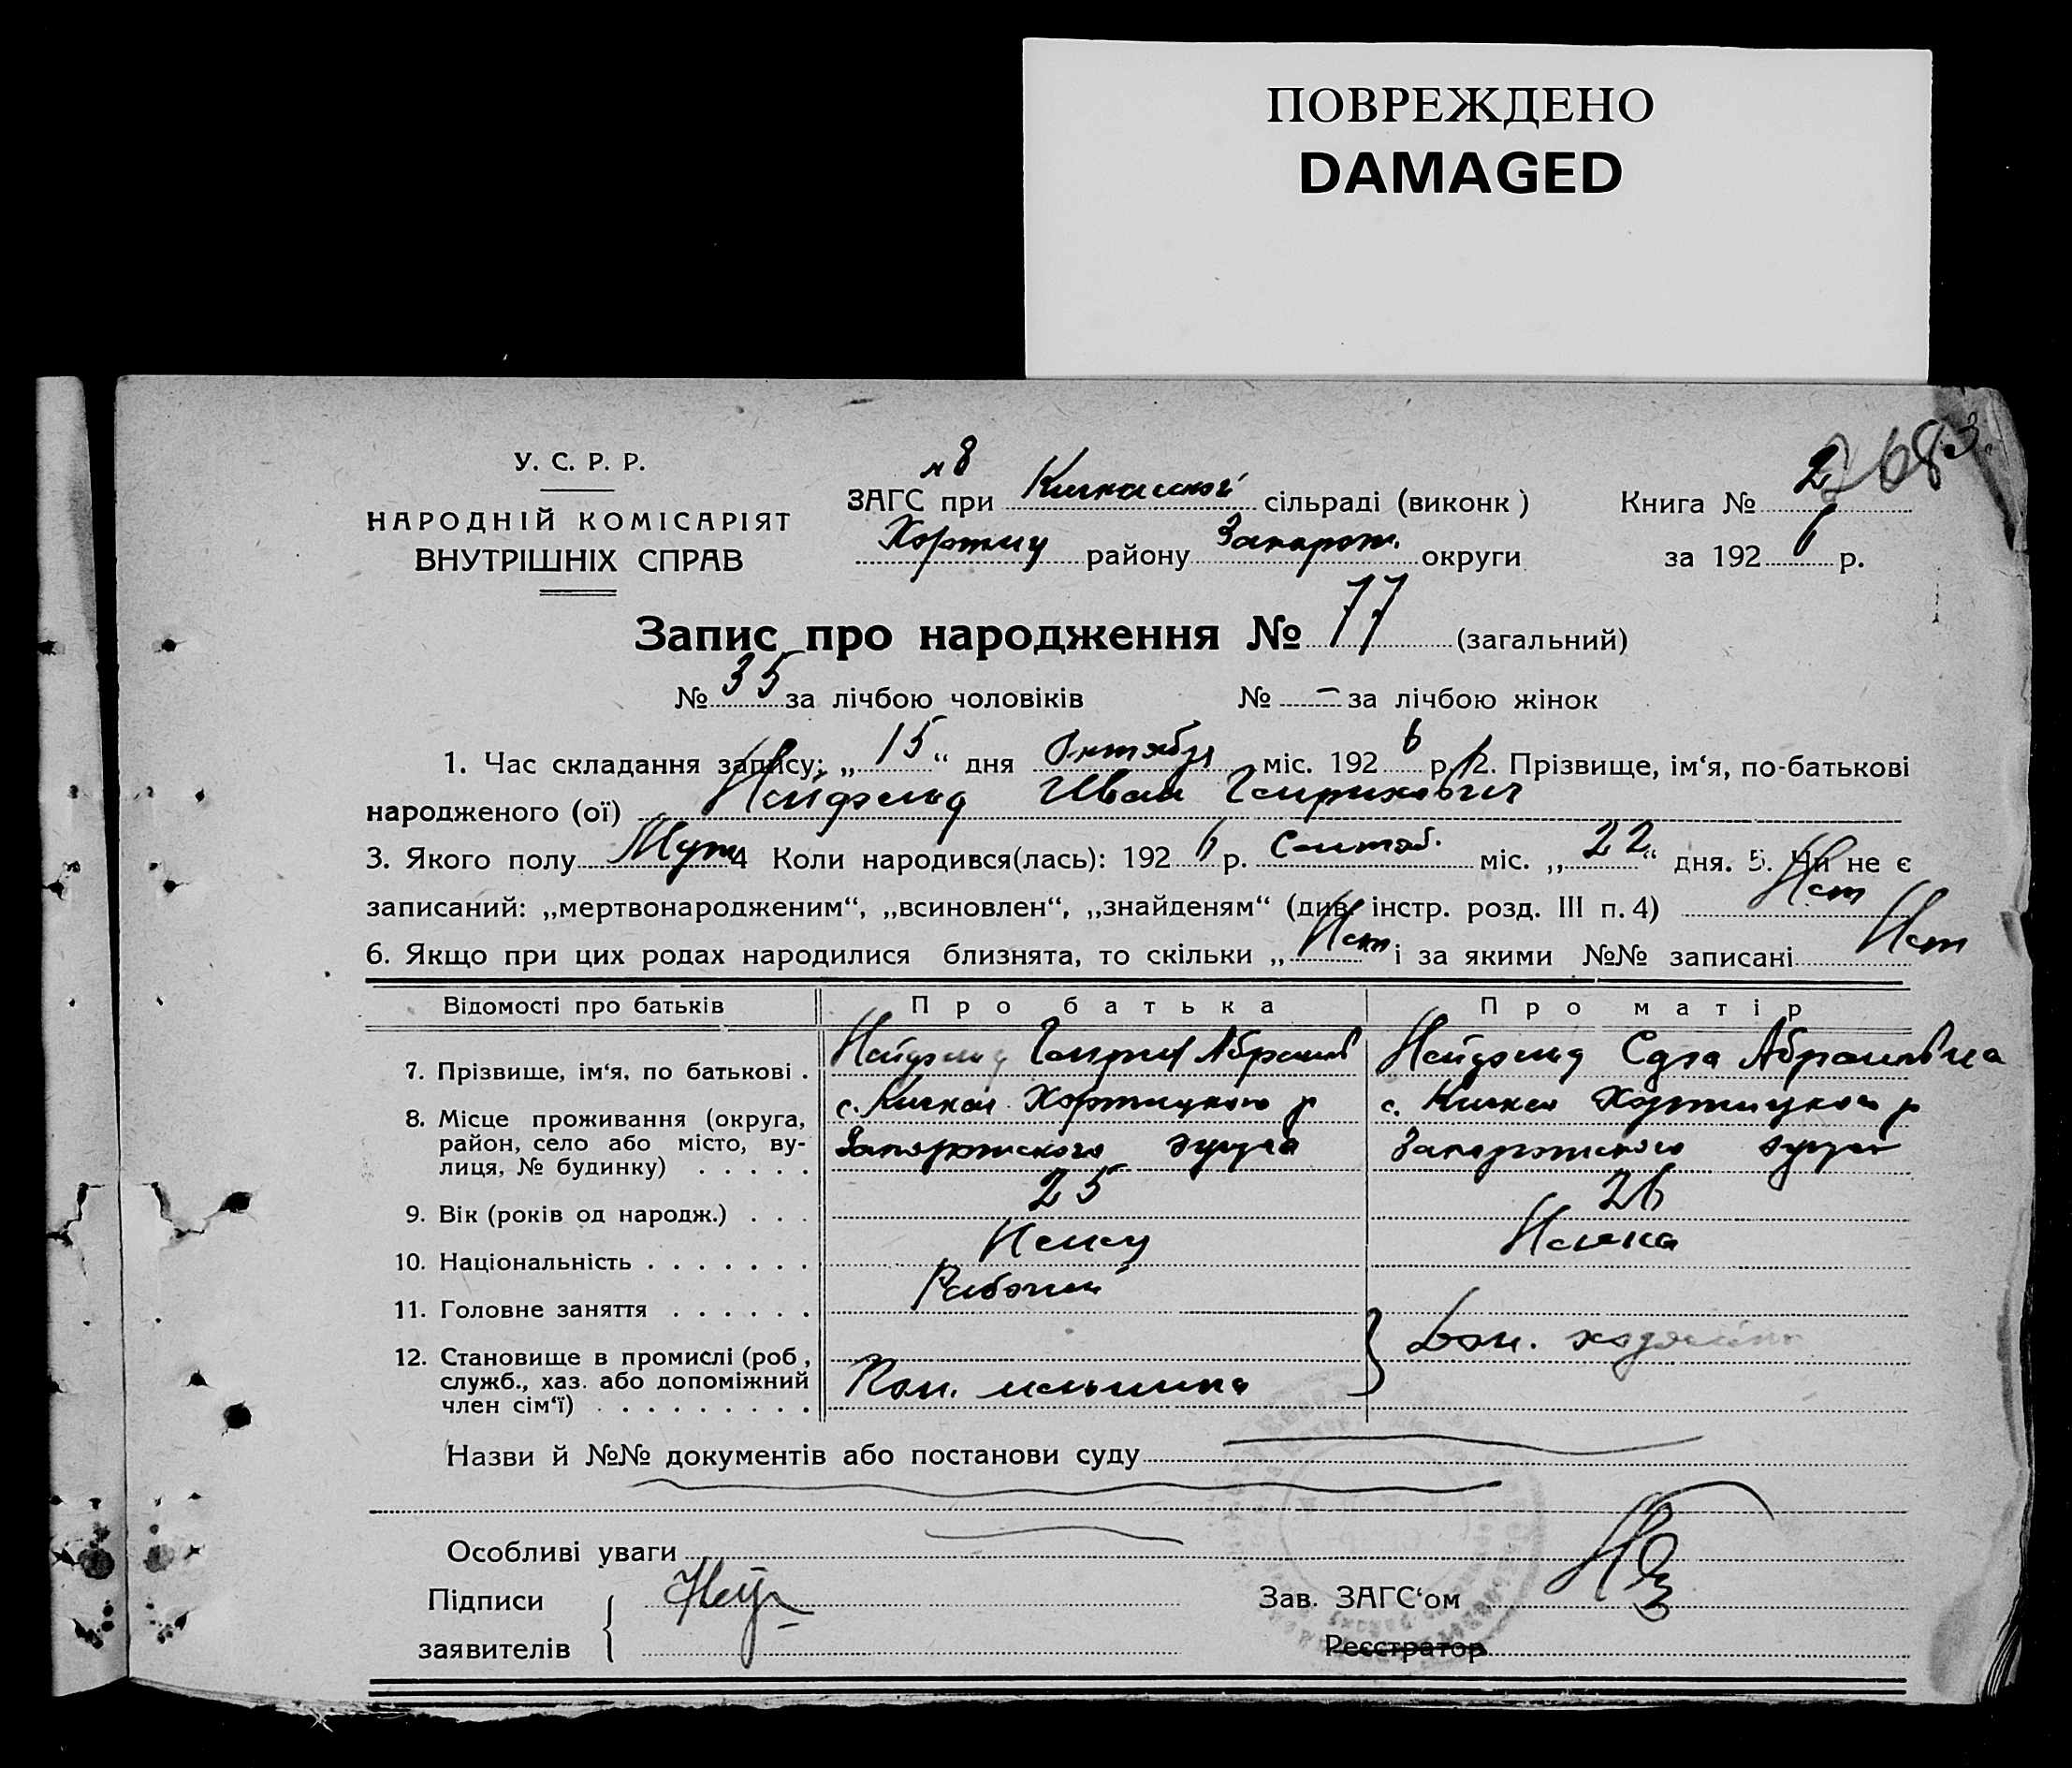 ПОВРЕЖДЕНО
DAMAGED
У. С. Р. Р.
НАРОДНІЙ КОМІСАРІЯТ
ВНУТРІШНІХ СПРАВ
№ 8
ЗАГС при Кичкасской сільраді (виконк)
Хортиц району Запорож. округи
Книга № 2
за 1926 р.
Запис про народження № 77 (загальний)
№ 35 за лічбою чоловіків № – за лічбою жінок
1. Час складання запису: „15“ дня Октября міс. 1926 р. 2. Прізвище, ім‘я, по-батькові
народженого (ої) Нейфельд Иван Генрихович
3. Якого полу Муж 4 Коли народився(лась): 1926 р. Сентяб. міс. „22“ дня. 5. Чи не є
записаний: „мертвонародженим“, „всиновлен“, „знайденям“ (див. інстр. розд. III п. 4) Нет
6. Якщо при цих родах народилися близнята, то скільки „Нет і за якими №№ записані Нет
Відомості про батьків Про батька Про матір
7. Прізвище, ім‘я, по батькові . Нейфельд Генрих Абрамов Нейфельд Абрамовна
8. Місце проживання (округа, с. Кичкас Хортицкого р с. Кичкас Хортицкого р
район, село або місто, ву- Запорожского округа Запорожского округа
лиця, № будинку) . . . . .
9. Вік (років од народж.) . . . 25 26
10. Національність . . . . . . . Немец Немка
11. Головне заняття . . . . . . Рабочий
12. Становище в промислі (роб., Пом. мельника } Дом. хозяйка
служб., хаз. або допоміжний
член сім‘ї) . . . . . . . . .
Назви й №№ документів або постанови суду
Особливі уваги
Підписи
заявителів
Зав. ЗАГС‘ом
Реєстратор